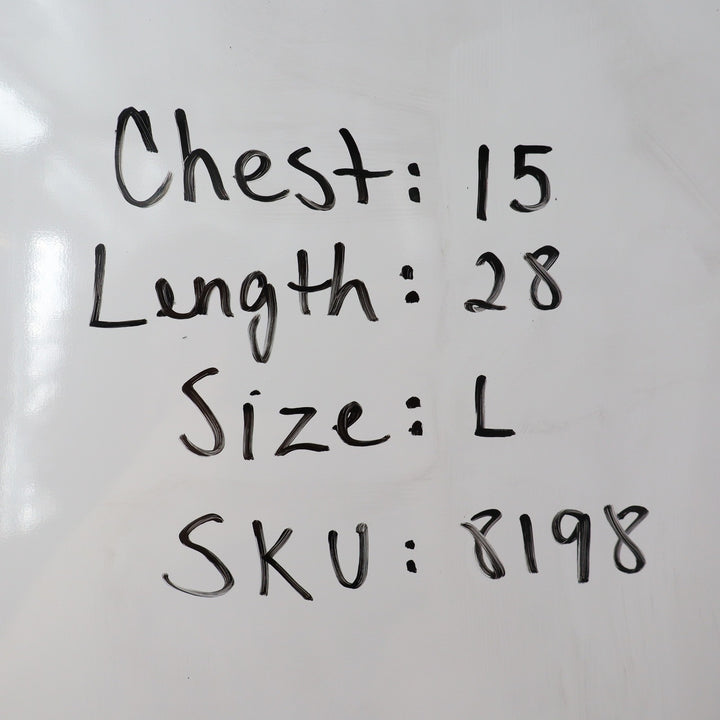 Chest: 15
Length: 28
Size: L
SKU: 8198